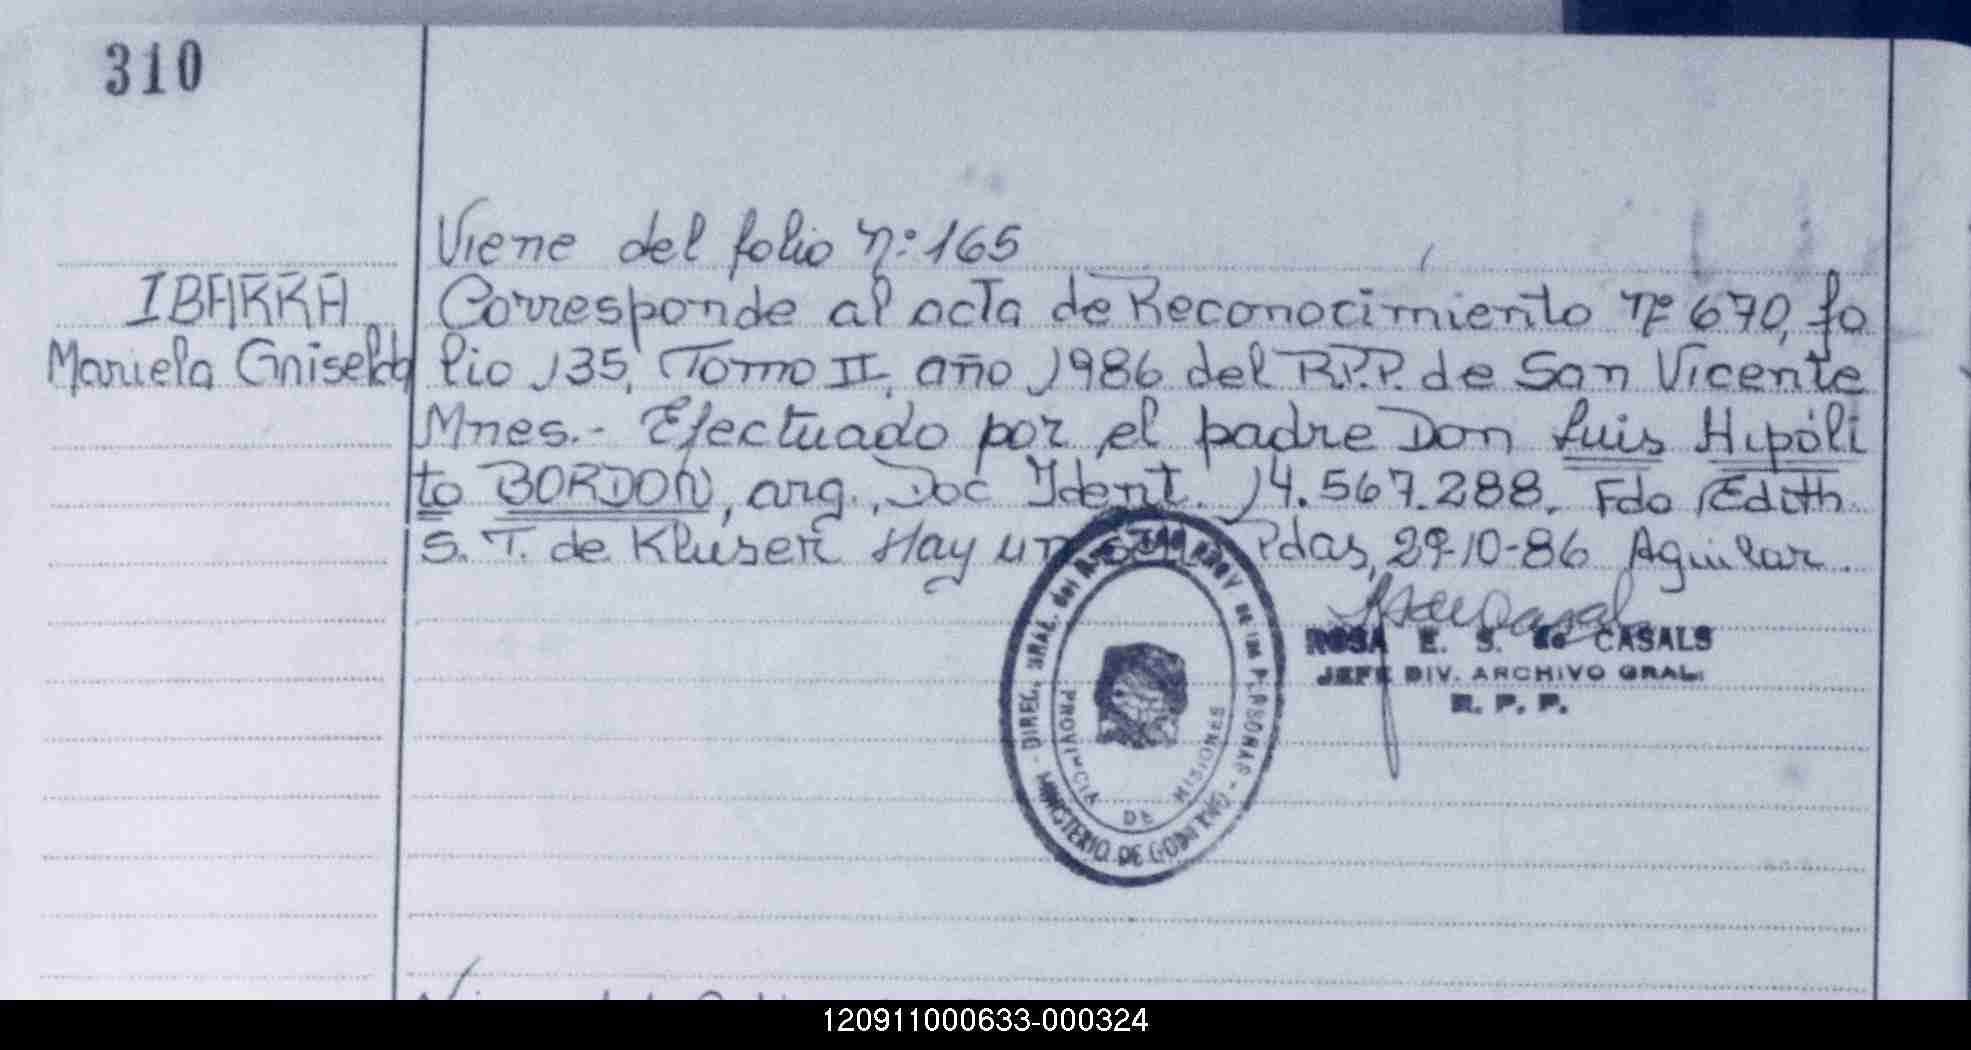 310
Viene del folio n°: 165
IBARRA
Mariela Griselda
Corresponde al acta de Reconocimiento n° 670, fo
lio 135, Tomo II, año 1986 del R.P.P. de San Vicente
Mnes.- Efectuado por el padre Don Luis Hipóli
to BORDON, arg., Doc Ident. 14.567.288. Fdo Edith
S. T. de Kluser Hay un Pdas, 29-10-86 Aguilar.
ROSA E. S. de CASALS
JEFE DIV. ARCHIVO GRAL.
R. P. P.
DIREC. GRAL. del PROV DE las PERSONAS
MINISTERIO DE GOBIERNO
PROVINCIA DE MISIONES
120911000633-000324